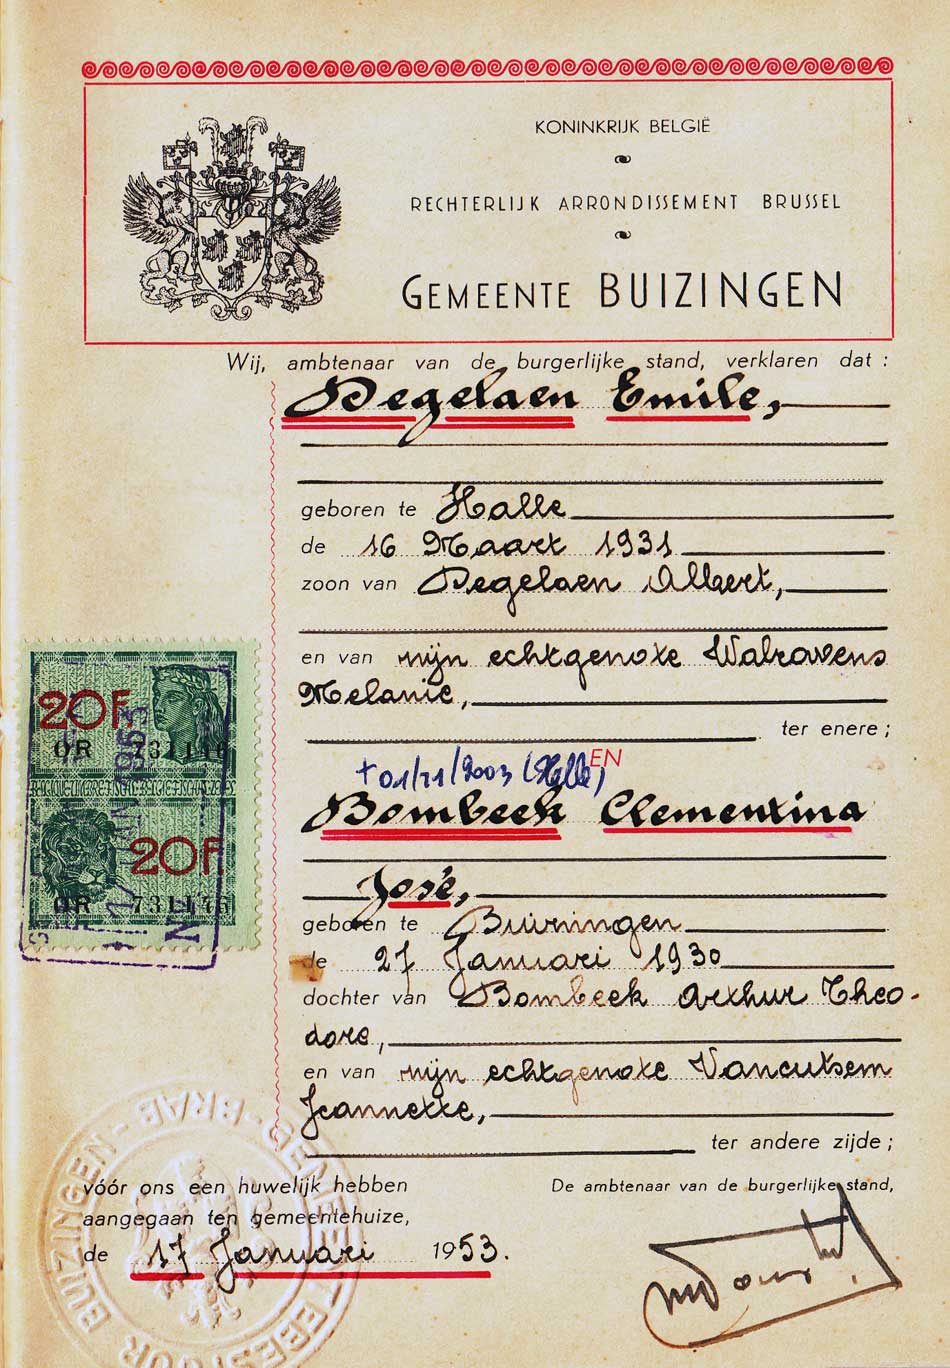 KONINKRIJK BELGIË
RECHTERLIJK ARRONDISSEMENT BRUSSEL
GEMEENTE BUIZINGEN
Wij, ambtenaar van de burgerlijke stand, verklaren dat :
Degelaen Emile,
geboren te Halle
de 16 Maart 1931
zoon van Degelaen Albert,
en van zijn echtgenote Walravens
Melanie,
ter enere ;
EN
+ 01/11/2003 (Halle)
Bombeek Clementina
José,
geboren te Buizingen
de 27 Januari 1930
dochter van Bombeek Arthur Theo-
dore,
en van zijn echtgenote Vancutsem
Jeannette,
ter andere zijde ;
vóór ons een huwelijk hebben
aangegaan ten gemeentehuize,
de 17 Januari 1953.
De ambtenaar van de burgerlijke stand,
20F
OR 731146
20F
OR 731146
BUIZINGEN - BRAB